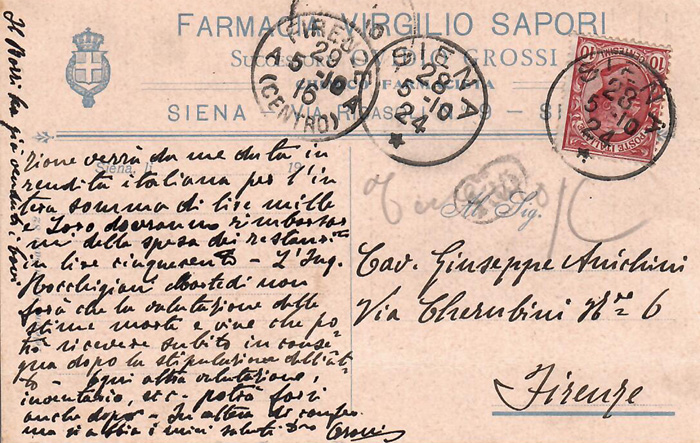 FARMACIA VIRGILIO SAPORI
Successore OVIDIO GROSSI
CHIMICO FARMACISTA
SIENA - VIA 9 -
FIRENZE
29
5-10
16
A A
(CENTRO)
SIENA
28
5-10
24
SIENA
28
5-10
24
10 10
POSTE ITALIANE
Siena, li 19
Il Rossi ha già venduti i buoi
zione verrà da me data in
rendita italiana per l'in
tera somma di lire mille
e Loro dovranno rimborsar
mi della spesa dei restanti
in lire cinquecento - L'Ing.
Rocchigiani Martedì non
farà che la valutazione delle
stime morte e vive che po-
trà ricevere subito in conse-
gna dopo la stipulazione dell'at-
to - Ogni altra valutazione,
inventario, ecc. potrà farsi
anche dopo - In attesa di conferma
si abbia i miei saluti
All Sig.
Cav. Giuseppe Anichini
Via Cherubini No 6
Firenze